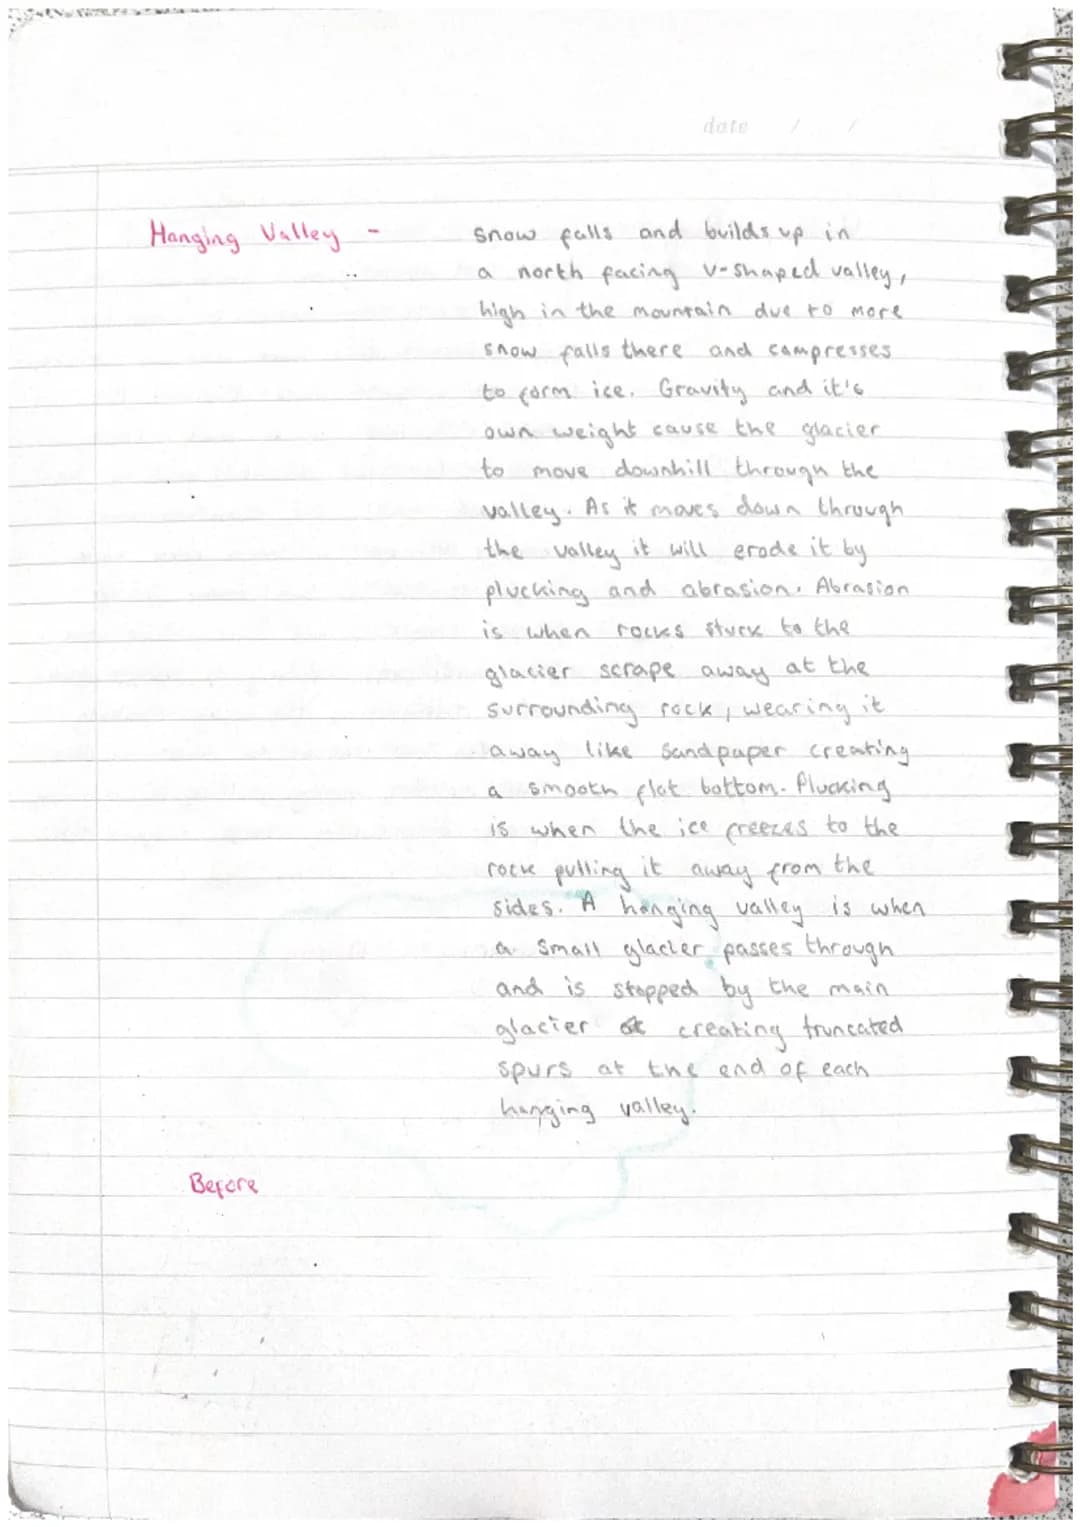 date / /
Hanging Valley - snow falls and builds up in
a north facing V-shaped valley,
high in the mountain due to more
snow falls there and compresses
to form ice. Gravity and it's
own weight cause the glacier
to move downhill through the
valley. As it moves down through
the valley it will erode it by
plucking and abrasion. Abrasion
is when rocks stuck to the
glacier scrape away at the
surrounding rock, wearing it
away like sandpaper creating
a smooth flat bottom. Plucking
is when the ice freezes to the
rock pulling it away from the
sides. A hanging valley is when
a small glacier passes through
and is stopped by the main
glacier creating truncated
spurs at the end of each
hanging valley.
Before